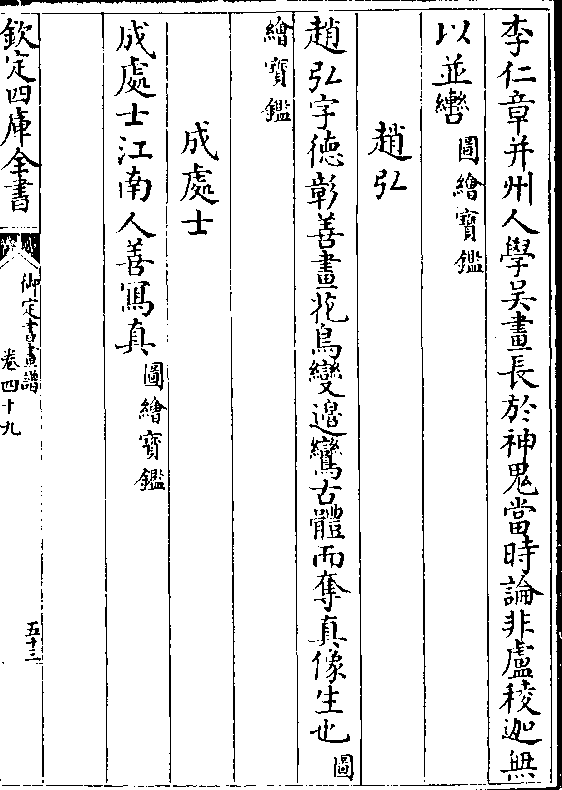 李仁章并州人學吴畫長於神鬼當時論非盧稜迦無
以並轡圖繪寳鑑
趙弘
趙弘字德彰善畫花鳥變邊鸞古體而奪真像生也圖
繪寳鑑
成處士
成處士江南人善冩真圖繪寳鑑
欽定四庫全書
御定書畫譜
卷四十九
五十三